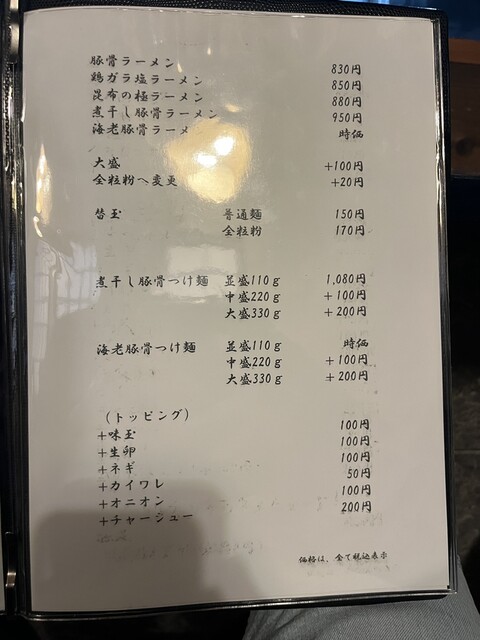 豚骨ラーメン 830円
鶏ガラ塩ラーメン 850円
昆布の極ラーメン 880円
煮干し豚骨ラーメン 950円
海老豚骨ラーメン 時価
大盛 +100円
全粒粉へ変更 +20円
替玉 普通麺 150円
全粒粉 170円
煮干し豚骨つけ麺 並盛110g 1,080円
中盛220g +100円
大盛330g +200円
海老豚骨つけ麺 並盛110g 時価
中盛220g +100円
大盛330g +200円
(トッピング)
+味玉 100円
+生卵 100円
+ネギ 100円
+カイワレ 50円
+オニオン 100円
+チャーシュー 200円
価格は、全て税込表示